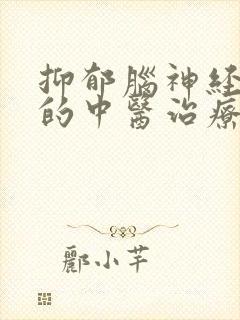 抑郁腦神経
的中醫治療
酈小芊